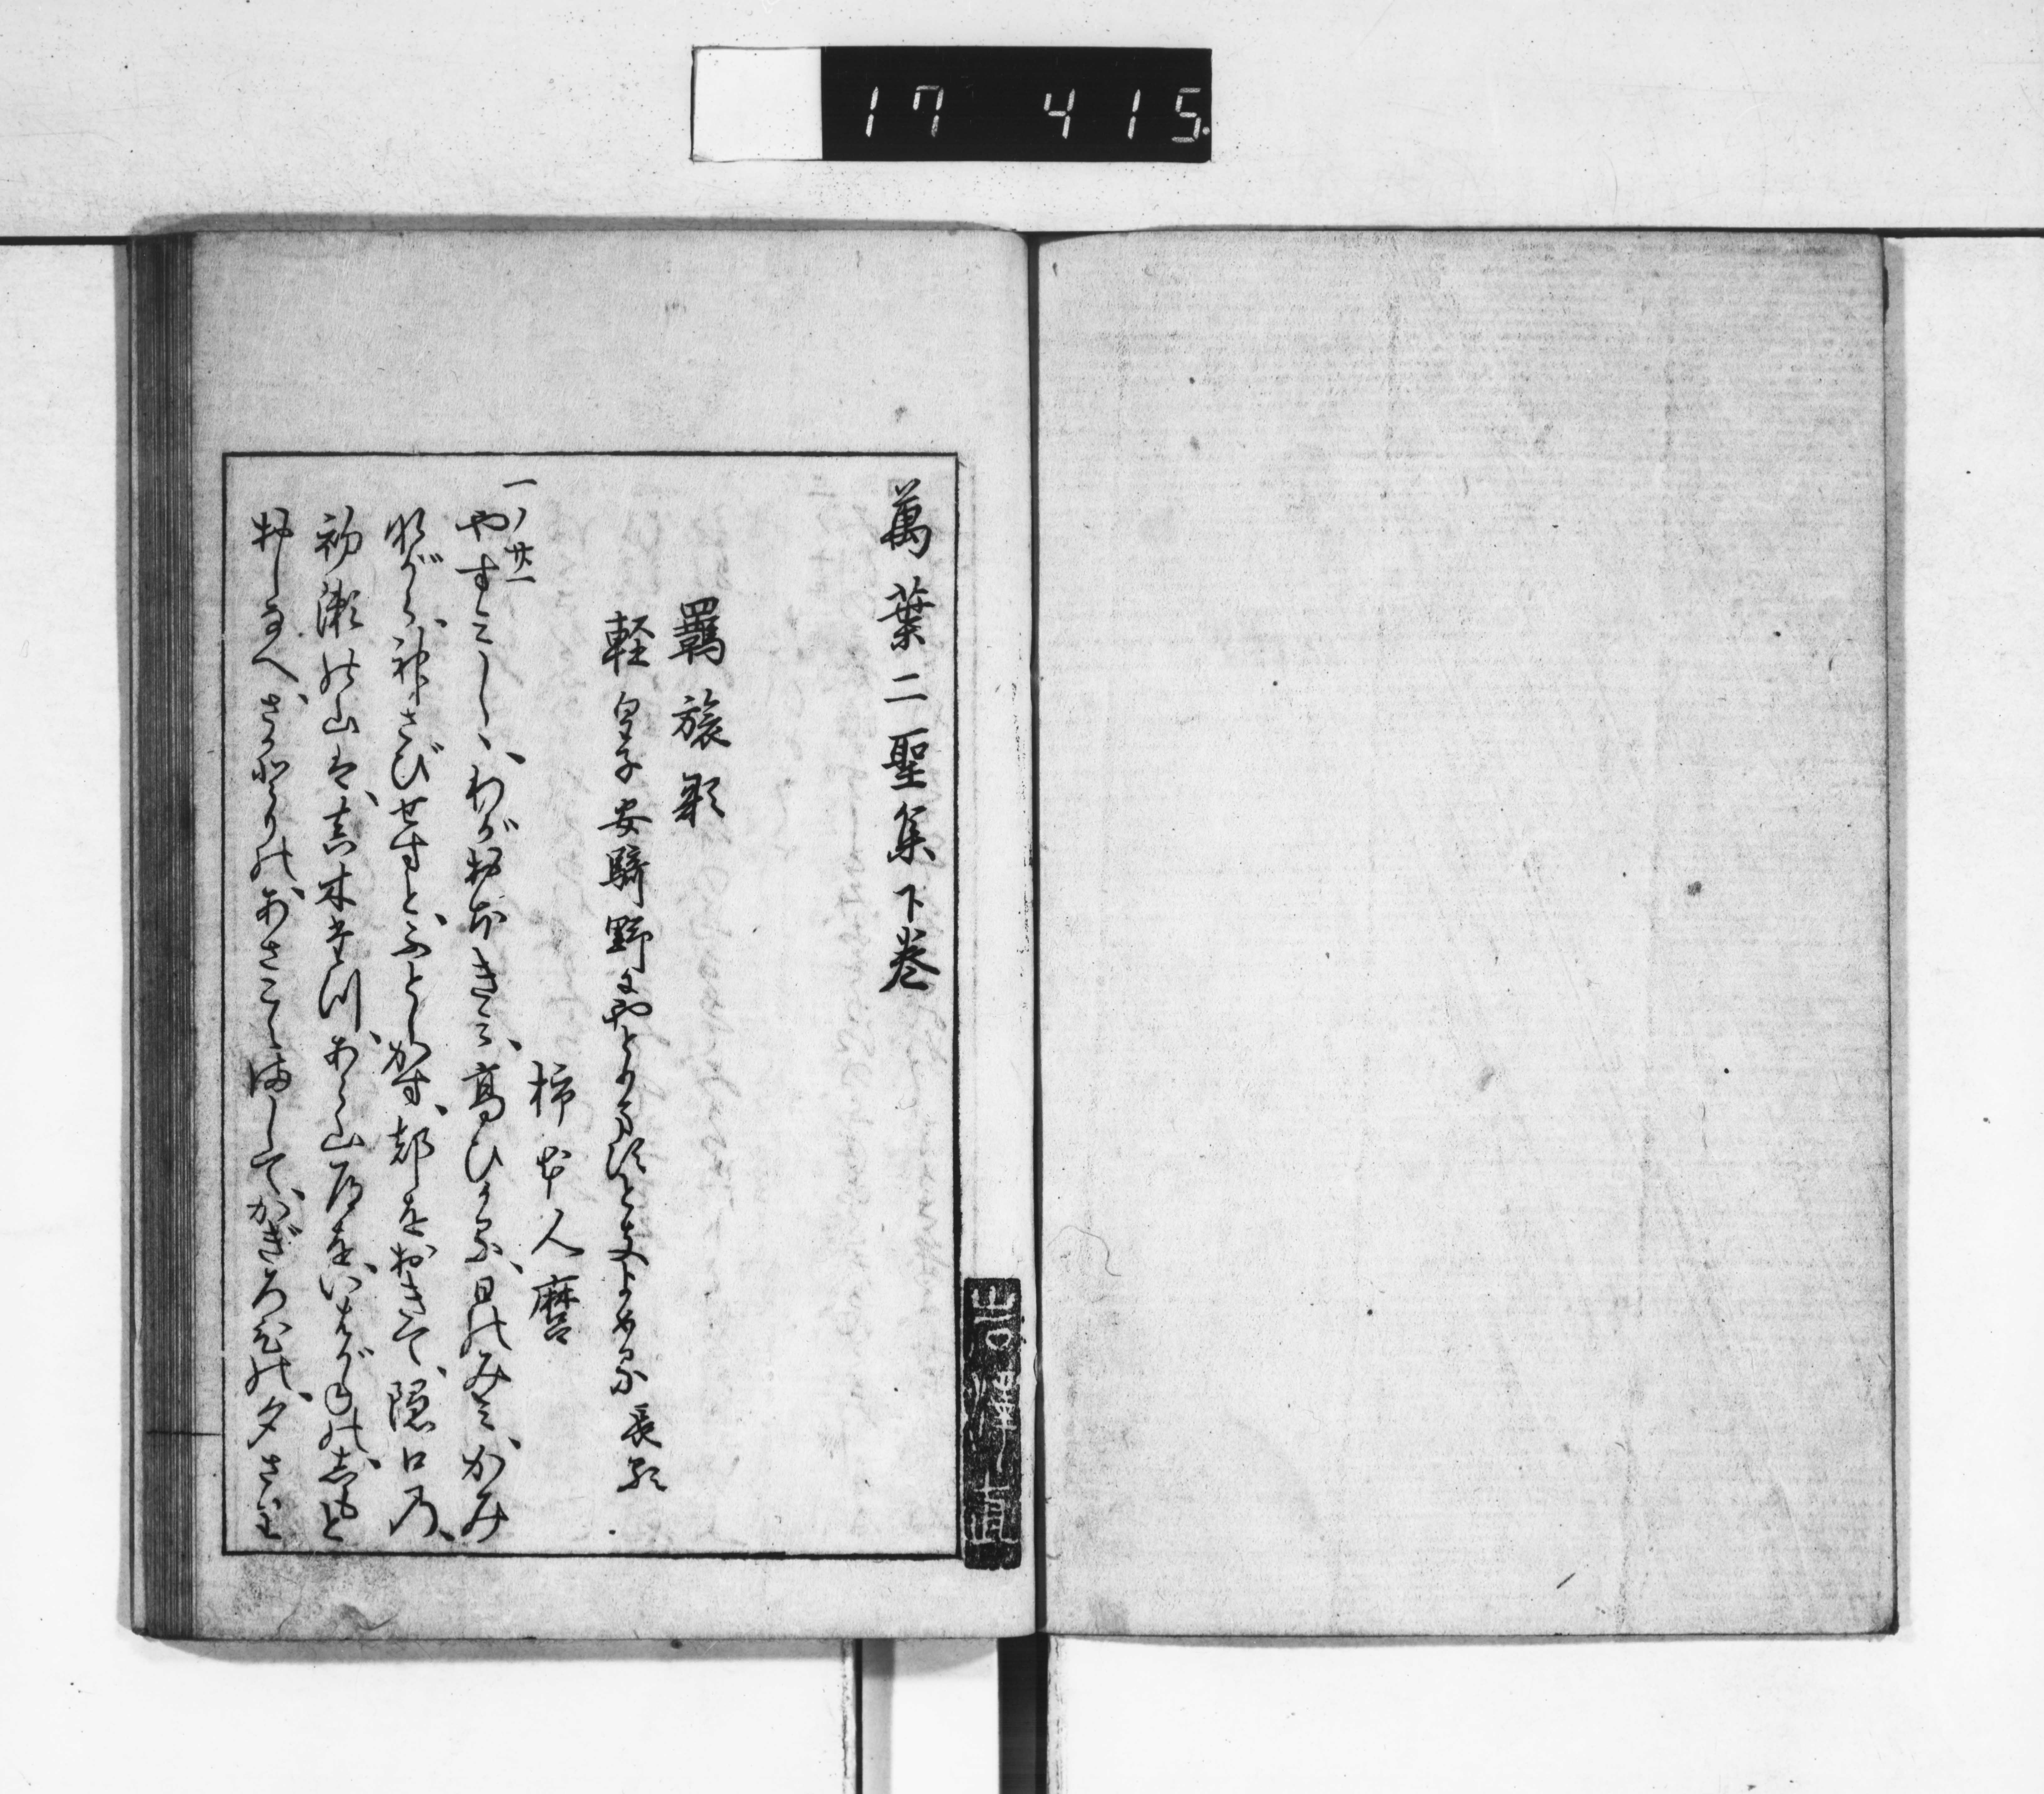 17 415
萬葉二聖集下巻
羈旅歌
軽皇子安騎野にやとりるときよめる長歌
柿本人麿
一ノ廿一
やすみしゝ、わがおほきみ、高ひかる、日のみこ、かみ
ながら、神さびせすと、ふとしかす、都をおきて、隠口乃、
初瀬の山は、真木たつ、あら山道を、いはがねの、しもと
おしなへ、さかとりの、あさこえまして、かぎろひの、夕されは